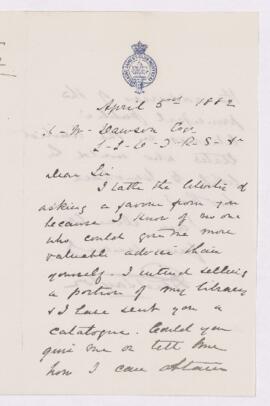 April 5 1882
J. W. Dawson Esqr
L.L.D. F.R.S. &
Dear Sir
I take the liberty of
asking a favour from you
because I know of no one
who could give me more
valuable advice than
yourself. I intend selling
a portion of my library
& I have sent you a
catalogue. Could you
give me or tell me
how I can obtain